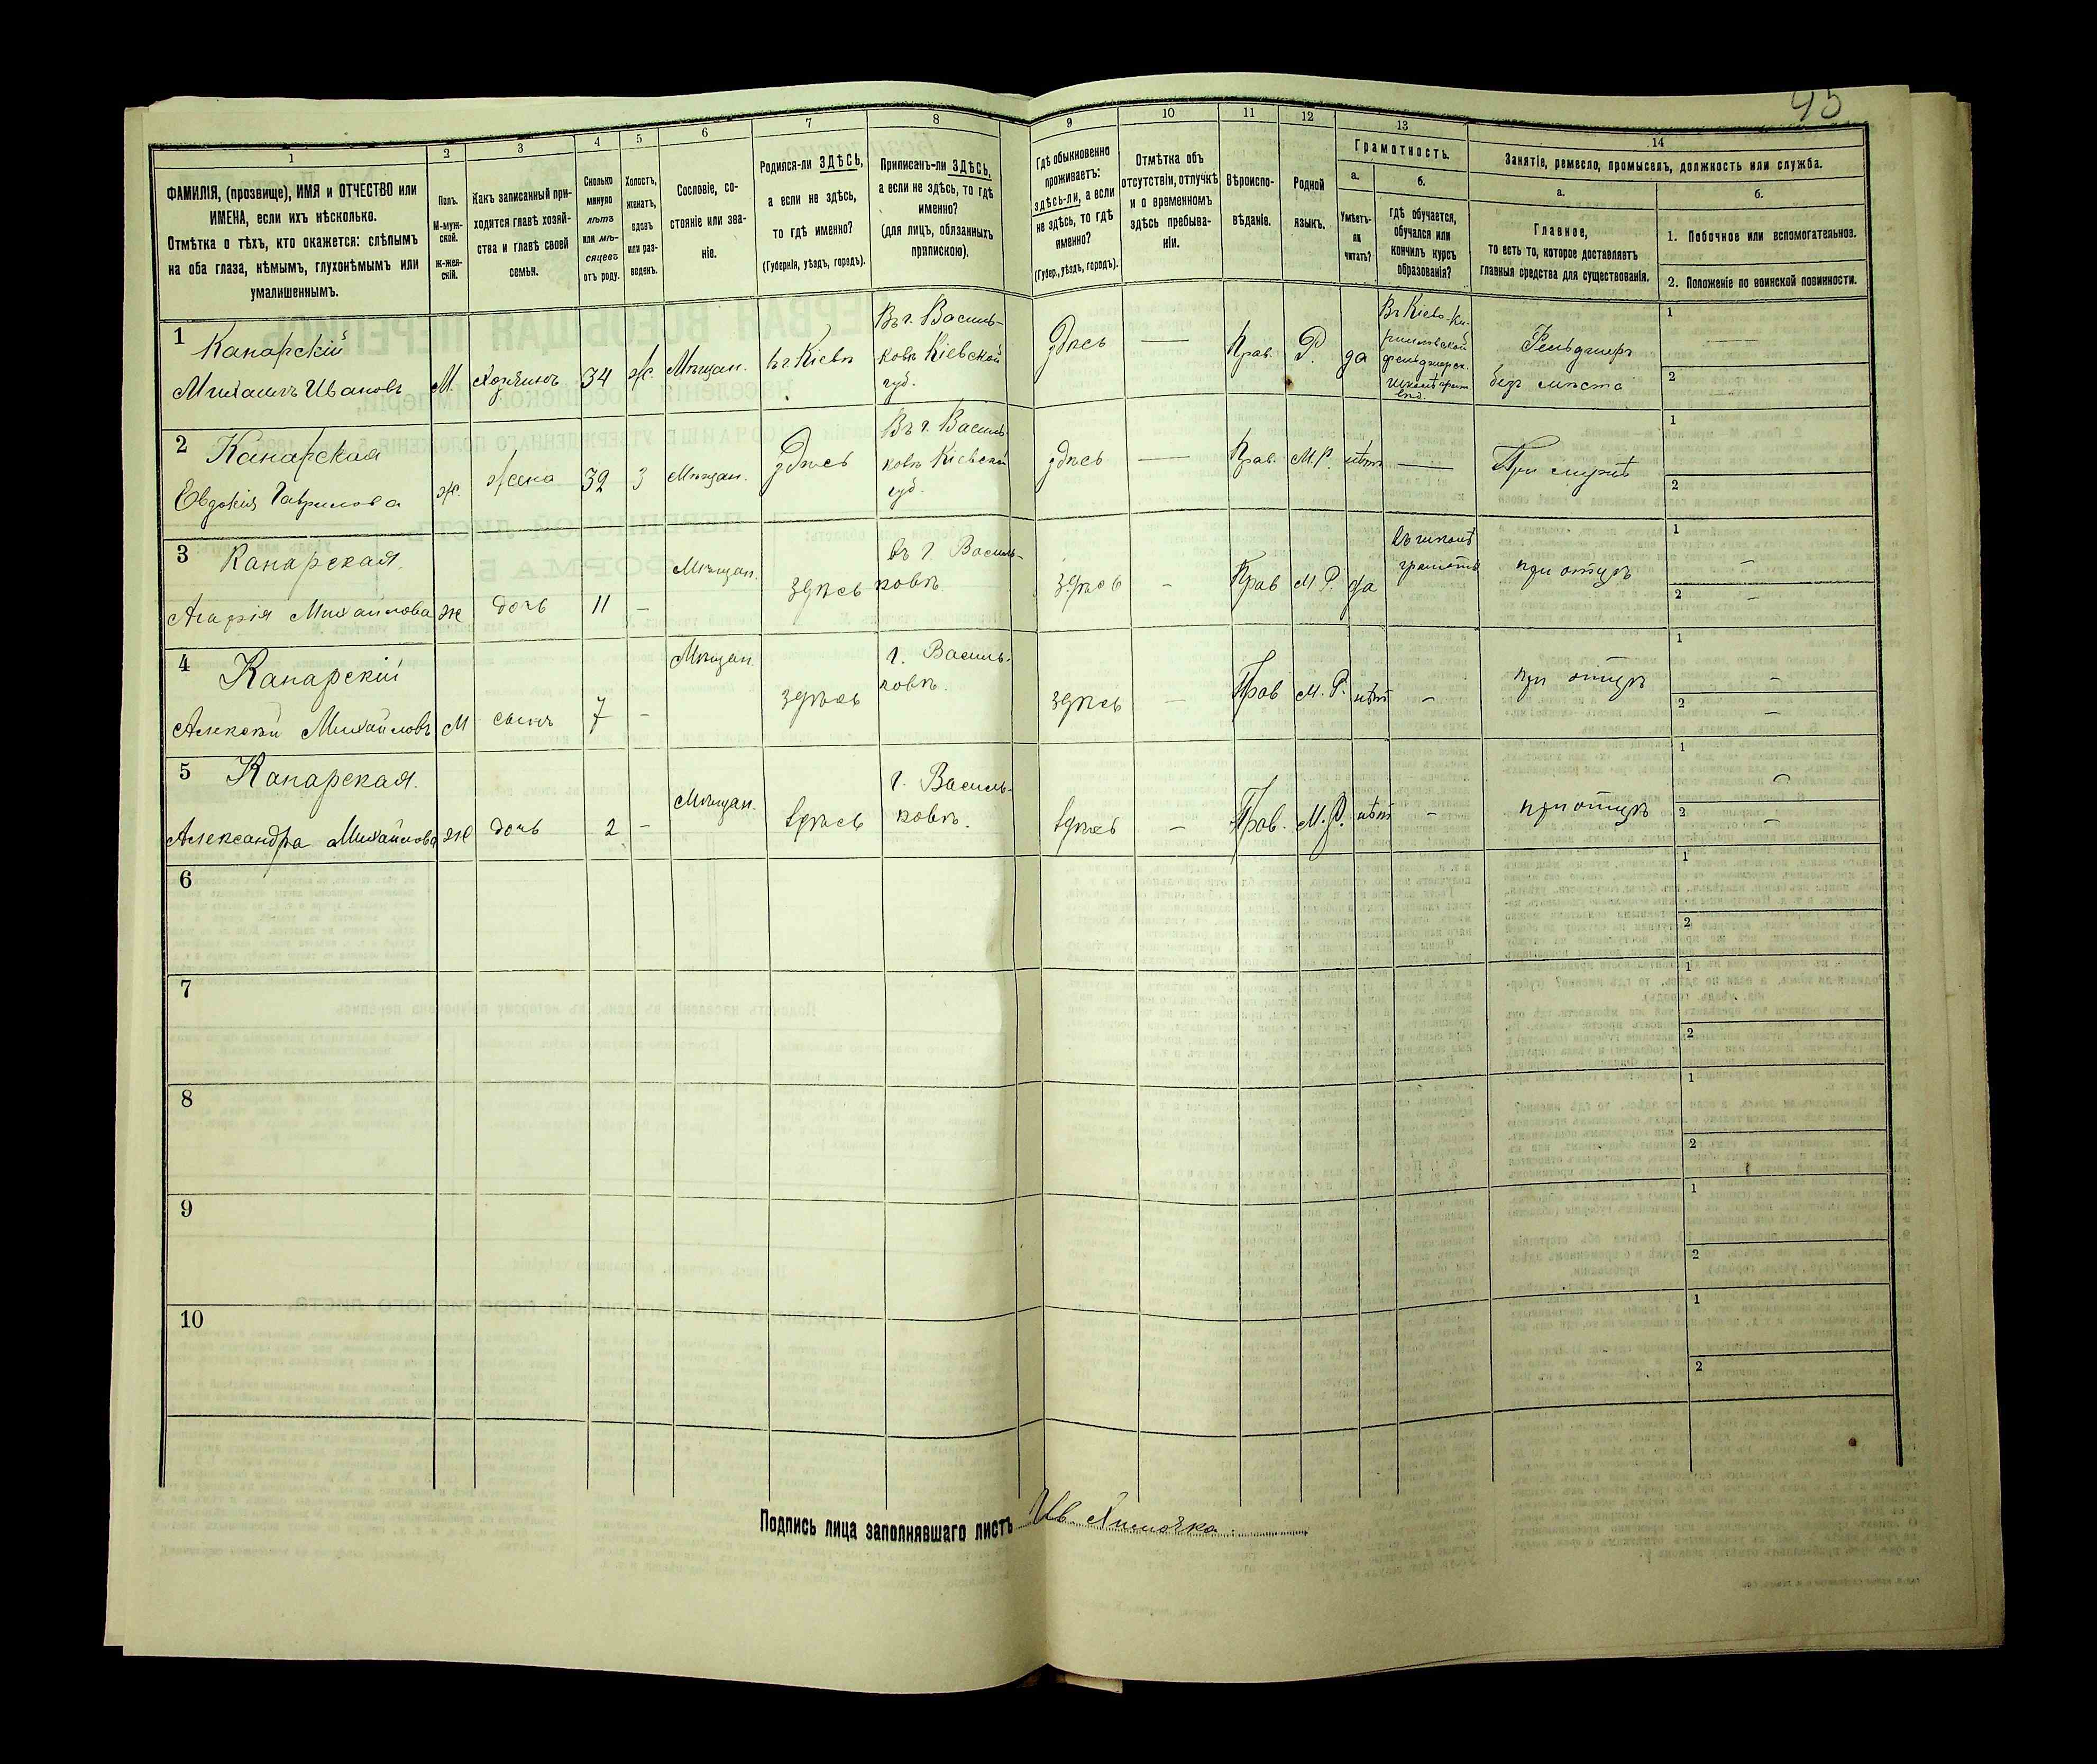 45
1 2 3 4 5 6 7 8 9 10 11 12 13 14
ФАМИЛІЯ, (прозвище), ИМЯ и ОТЧЕСТВО или
ИМЕНА, если ихъ нѣсколько.
Отмѣтка о тѣхъ, кто окажется: слѣпымъ
на оба глаза, нѣмымъ, глухонѣмымъ или
умалишеннымъ.
Полъ.
М-муж-
ской.
Ж-жен-
скій.
Какъ записанный при-
ходится главѣ хозяй-
ства и главѣ своей
семьи.
Сколько
минуло
лѣтъ
или мѣ-
сяцевъ
отъ роду.
Холостъ,
женатъ,
вдовъ
или раз-
веденъ.
Сословіе, со-
стояніе или зва-
ніе.
Родился-ли ЗДѢСЬ,
а если не здѣсь,
то гдѣ именно?
(Губернія, уѣздъ, городъ).
Приписанъ-ли ЗДѢСЬ,
а если не здѣсь, то гдѣ
именно?
(для лицъ, обязанныхъ
припискою).
Гдѣ обыкновенно
проживаетъ:
здѣсь-ли, а если
не здѣсь, то гдѣ
именно?
(Губер., уѣздъ, городъ).
Отмѣтка объ
отсутствіи, отлучкѣ
и о временномъ
здѣсь пребыва-
ніи.
Вѣроиспо-
вѣданіе.
Родной
языкъ.
Грамотность.
а.
Умѣетъ-
ли
читать?
б.
гдѣ обучается,
обучался или
кончилъ курсъ
образованія?
Занятіе, ремесло, промыселъ, должность или служба.
а.
Главное,
то есть то, которое доставляетъ
главныя средства для существованія.
б.
1. Побочное или вспомогательное.
2. Положеніе по воинской повинности.
1 Канарскій
Михаилъ Ивановъ
М. Хозяинъ 34 ж. Мѣщан. въ г. Кіевѣ
Въ г. Василь-
ковѣ Кіевской
губ.
Здѣсь — Прав. Р. да
Въ Кіево-Ки-
рилловской
фельдшерск.
школѣ
Фельдшеръ
безъ мѣста
1 —
2 —
2 Канарская
Евдокія Гаврилова
ж. жена 32 з Мѣщан. Здѣсь
Въ г. Василь-
ковѣ Кіевской
губ.
здѣсь — Прав. М.Р. нѣтъ —
При мужѣ
1
2
3 Канарская.
Агафія Михайлова
ж дочь 11 — Мѣщан. здѣсь
въ г Василь-
ковѣ.
здѣсь — Прав М Р. да
въ школѣ
грамоты
при отцѣ
1 —
2 —
4 Канарскій
Алексѣй Михайловъ
М сынъ 7 — Мѣщан. здѣсь
г. Василь-
ковѣ.
здѣсь — Прав М. Р. нѣтъ —
при отцѣ
1 —
2 —
5 Канарская.
Александра Михайлова
ж дочь 2 — Мѣщан. здѣсь
г. Василь-
ковѣ.
здѣсь — Прав. М.Р. нѣтъ —
при отцѣ
1 —
2 —
6 1
2
7 1
2
8 1
2
9 1
2
10 1
2
Подпись лица заполнявшаго листъ Ив.